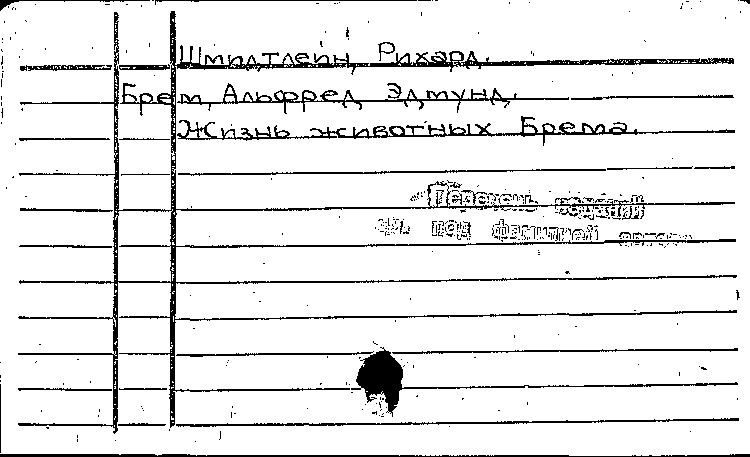 Шмидтлейн, Рихард.
Брем, Альфред Эдмунд.
Жизнь животных Брема.
Перечень изданий
см. под фамилией автора